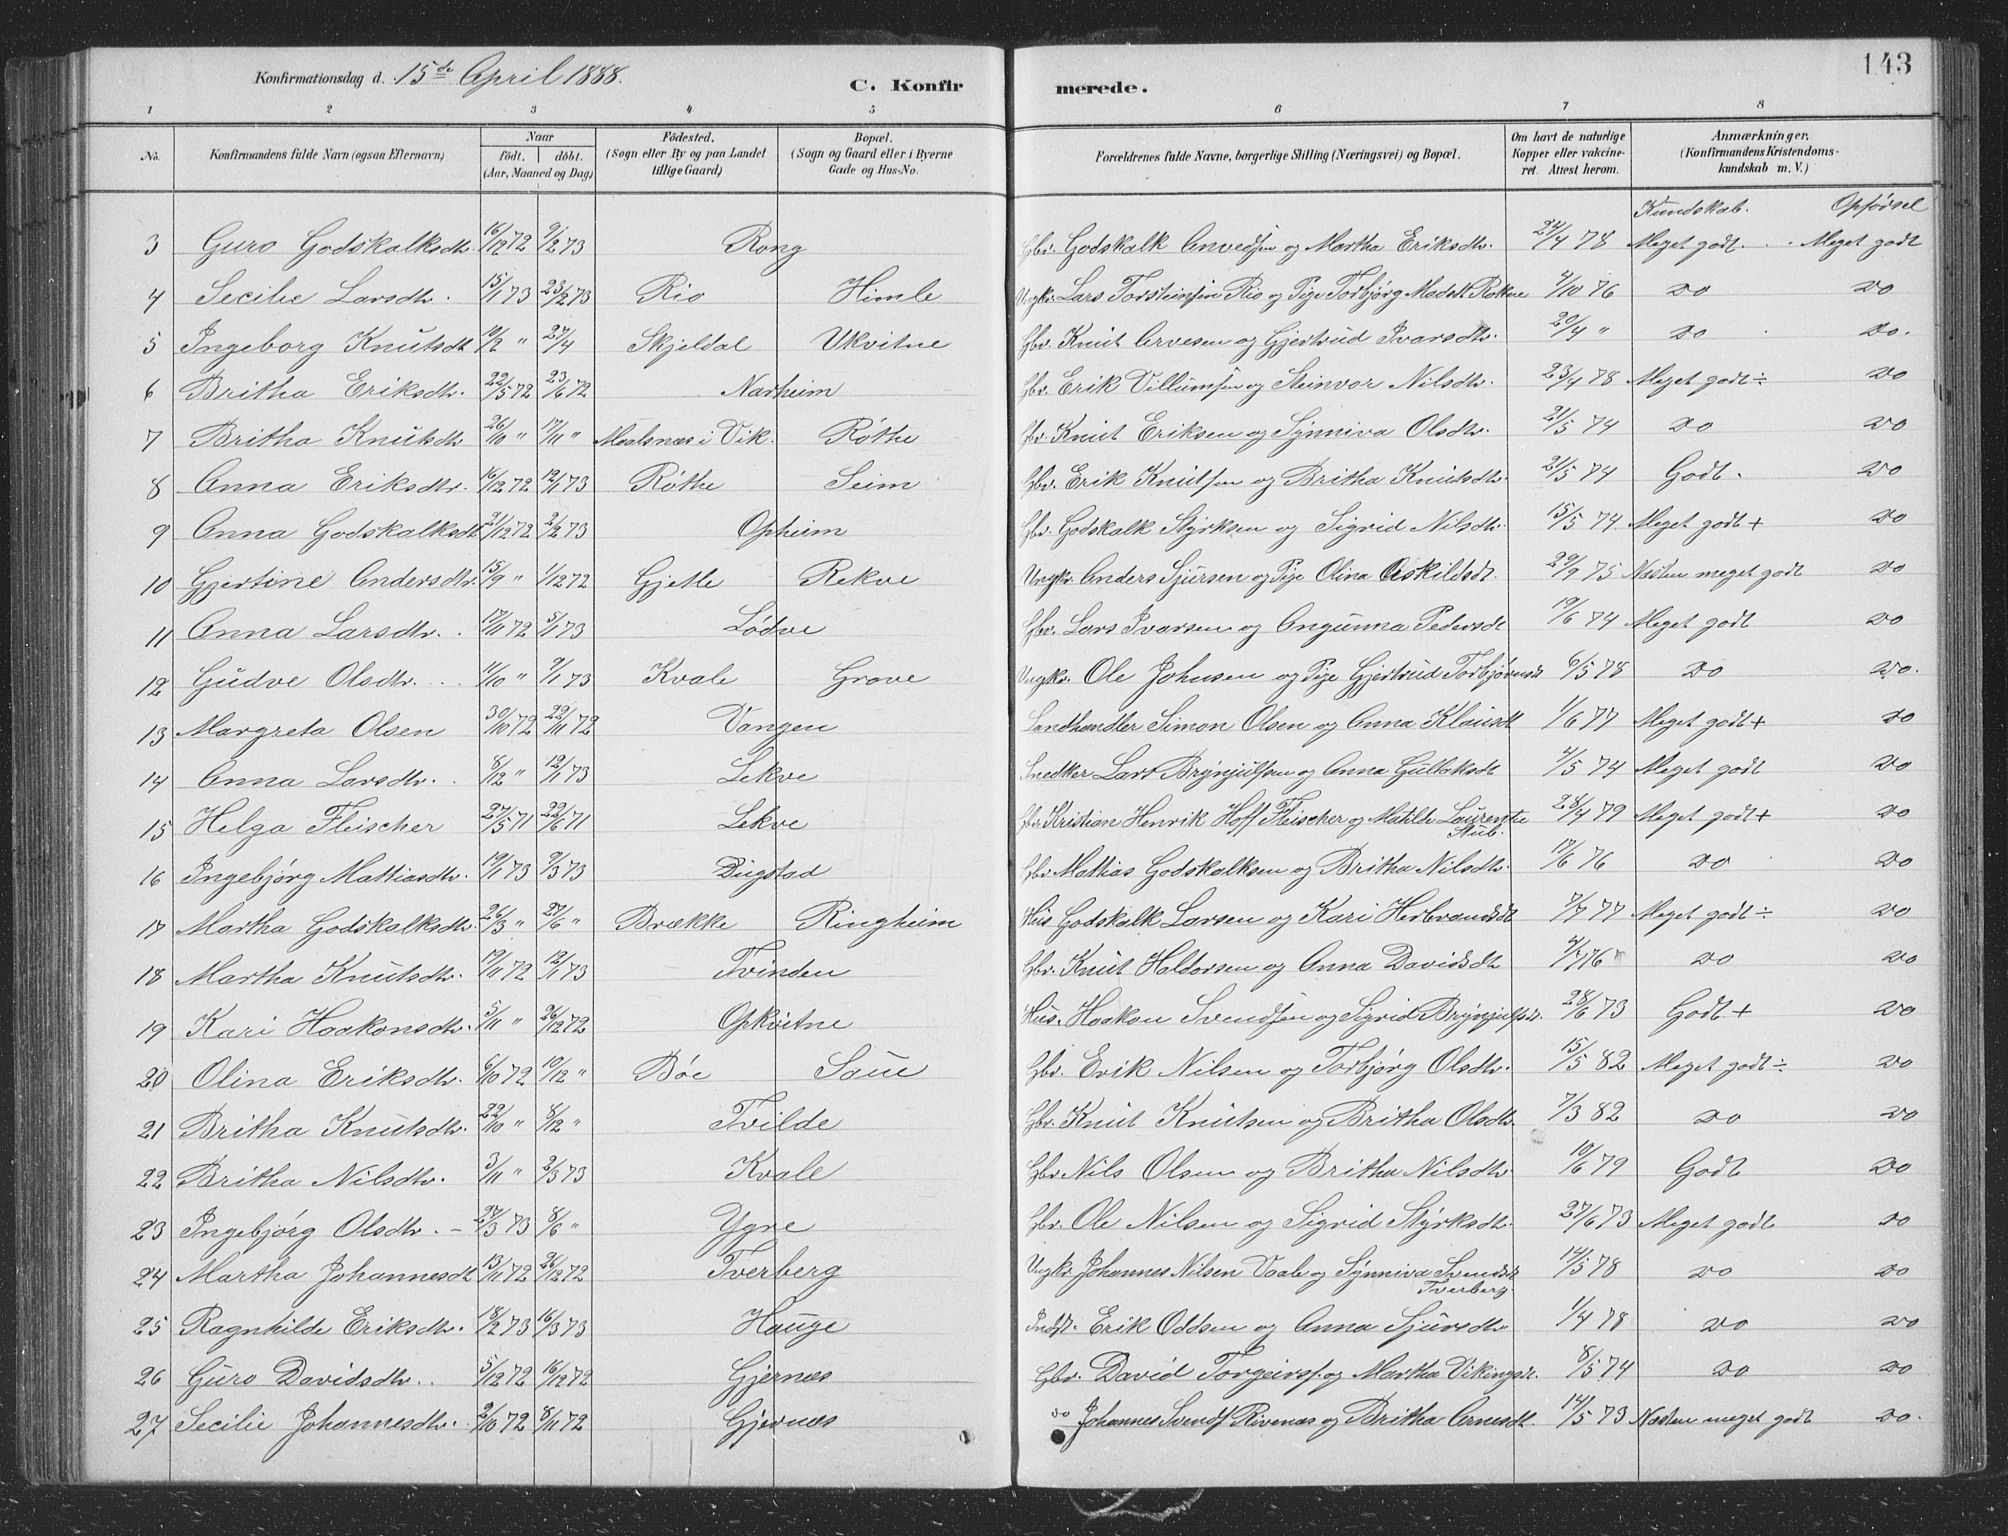 143
Konfirmationsdag d. 15de April 1888.
C. Konfirmerede.
1 2 3 4 5 6 7 8
No. Konfirmandens fulde Navn (ogsaa Efternavn) Naar födt. döbt. (Aar, Maaned og Dag) Födested. (Sogn eller By og paa Landet tillige Gaard) Bopæl. (Sogn og Gaard eller i Byerne Gade og Hus-No. Forældrenes fulde Navne, borgerlige Stilling (Næringsvei) og Bopæl. Om havt de naturlige Kopper eller vakcineret. Attest herom. Anmærkninger. (Konfirmandens Kristendomskundskab m. V.)
Kundskab. Opførsel
3 Guro Godskalksdtr. 16/12 72 9/2 73 Rong Gbr. Godskalk Anvedsen og Martha Eriksdtr. 24/4 78 Meget godt. Meget godt
4 Secilie Larsdtr. 15/1 73 23/2 73 Rio Himle Ungkr. Lars Torsteinsen Rio og Pige Torbjørg Madsdt Rokne 4/10 76 do do
5 Ingeborg Knutsdt 10/2 " 27/4 Skjeldal Ukvitne Gbr. Knut Arvesen og Gjertrud Ivarsdtr. 20/4 " do do.
6 Britha Eriksdtr. 22/5 72 23/6 72 Narheim Gbr. Erik Villumsen og Steinvor Nilsdtr. 23/4 78 Meget godt ÷ do
7 Britha Knutsdtr 26/10 " 17/11 " Maalsnæs i Vik. Røthe Gbr. Knut Eriksen og Synniva Olsdtr. 21/5 74 do do
8 Anna Eriksdtr. 16/12 72 12/1 73 Røthe Seim Gbr. Erik Knutsen og Britha Knutsdtr. 21/5 74 Godt. do
9 Anna Godskalksdt 21/12 72 2/2 73 Opheim Gbr. Godskalk Styrksen og Sigrid Nilsdtr. 15/5 74 Meget godt + do
10 Gjertine Andersdtr. 15/9 " 1/12 72 Gjelle Rekve Ungkr. Anders Sjursen og Pige Olina Askildsdt. 29/9 75 Næsten meget godt do
11 Anna Larsdtr. 17/11 72 5/1 73 Lødve Gbr. Lars Ivarsen og Angunna Pedersdt 19/6 74 Meget godt do
12 Gudve Olsdtr. 11/10 " 9/1 73 Kvale Grove Ungkr. Ole Johnsen og Pige Gjertrud Torbjørnsdt 6/5 78 do do.
13 Margreta Olsen 30/10 72 22/11 72 Vangen Landhandler Simon Olsen og Anna Klausdt 1/6 77 Meget godt + do
14 Anna Larsdtr. 8/12 " 12/1 73 Lekve Snedker Lars Brynjulfsen og Anna Gulleksdt 4/5 74 Meget godt do
15 Helga Fleischer 27/5 71 22/6 71 Lekve Gbr Kristian Henrik Hoff Fleischer og Matilde Laurentie Stub. 28/4 79 Meget godt + do
16 Ingebjørg Mattiasdtr. 19/1 73 9/3 73 Dugstad Gbr Mathias Godskalksen og Britha Nilsdtr. 17/6 76 do do
17 Martha Godskalksdtr. 26/3 " 27/6 " Brække Ringheim Hus Godskalk Larsen og Kari Herbrandsdt 7/7 77 Meget godt ÷ do
18 Martha Knutsdtr. 19/11 72 12/1 73 Tvinden Gbr. Knut Haldorsen og Anna Davidsdtr 4/7 76 do do
19 Kari Haakonsdtr. 5/11 " 26/12 72 Opkvitne Hus. Haakon Svendsen og Sigrid Brynjulfsdt. 28/6 73 Godt + do
20 Olina Eriksdtr. 6/10 72 10/12 " Bøe Saue Gbr. Erik Nilsen og Torbjørg Olsdtr. 15/5 82 Meget godt ÷ do
21 Britha Knutsdtr. 22/10 " 8/12 " Tvilde Gbr. Knut Knutsen og Britha Olsdtr. 7/3 82 do do
22 Britha Nilsdtr. 3/11 " 2/3 73 Kvale Gbr. Nils Olsen og Britha Nilsdtr. 10/6 79 Godt do
23 Ingebjørg Olsdtr. – 27/3 73 8/6 " Ygre Gbr. Ole Nilsen og Sigrid Styrksdtr. 27/6 73 Meget godt do
24 Martha Johannesdt 13/11 72 26/12 72 Tverberg Ungkr. Johannes Nilsen Vaale og Synniva Svendsdt Tverberg. 14/5 78 do do
25 Ragnhilde Eriksdtr. 18/2 73 16/3 73 Hauge Indst. Erik Oddsen og Anna Sjursdtr 1/4 78 do do
26 Guro Davidsdtr. 5/12 72 16/12 72 Gjernæs Gbr. David Torgeirss. og Martha Vikingsdt. 8/5 74 do do
27 Secilie Johannesdtr. 2/10 72 8/11 72 Gjernæs do Johannes Svends Rivenæs og Britha Arnesdt. 14/5 73 Næsten meget godt do.